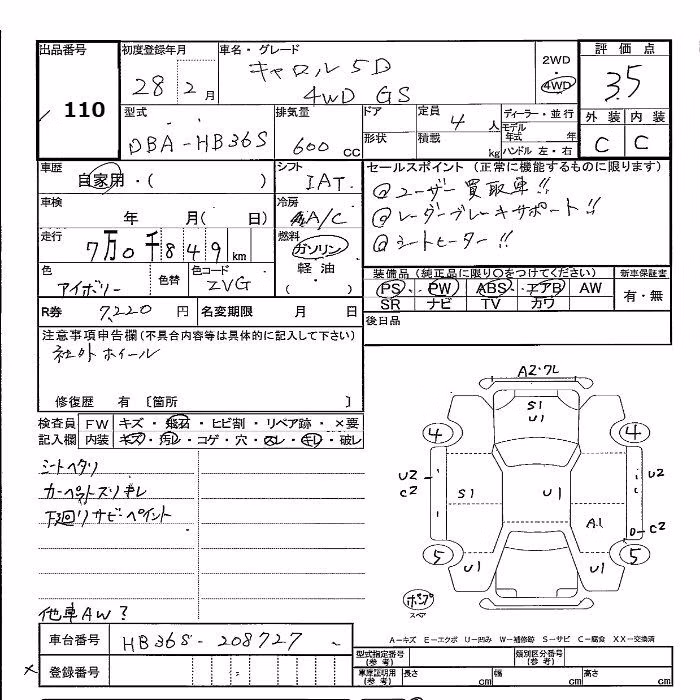 出品番号 初度登録年月 車名・グレード 2WD 評価点
110 28年 2月 キャロル 5D 4WD GS ・ 4WD 3.5
型式 排気量 ドア 定員 4人 ディーラー・並行 外装 内装
DBA-HB36S 600cc 形状 積載 kg モデル年式 年 ハンドル 左・右 C C
車歴 シフト セールスポイント (正常に機能するものに限ります)
自家用・( ) IAT @ユーザー買取車!!
車検 年 月( 日) 冷房 A/C @レーダーブレーキサポート!!
走行 7万0千849km 燃料 ガソリン @シートヒーター!!
軽油 ・( )
色 アイボリー 色替 色コード ZVG
装備品(純正品に限り○をつけてください) 新車保証書
PS PW ABS エアB AW 有・無
SR ナビ TV カワ
R券 7,220円 名変期限 月 日 後日品
注意事項申告欄(不具合内容等は具体的に記入して下さい)
社外ホイール
修復歴 有 〔箇所 〕
検査員 FW キズ・飛石・ヒビ割・リペア跡・×要
記入欄 内装 キズ・汚レ・コゲ・穴・スレ・キレ・破レ
シートヘタリ
カーペットスリキレ
下廻りサビ・ペイント
他車AW?
A2・フレ
S1
U1
4 4
U2
C2
S1 U1
U2
A1
D C2
5 5
U1 U1
ポンプ
スペア
A-キズ E-エクボ U-凹み W-補修跡 S-サビ C-腐食 XX-交換済
車台番号 HB36S-208727
登録番号
型式指定番号(参考) 類別区分番号(参考)
車庫証明用(参考) 長さ cm 幅 cm 高さ cm